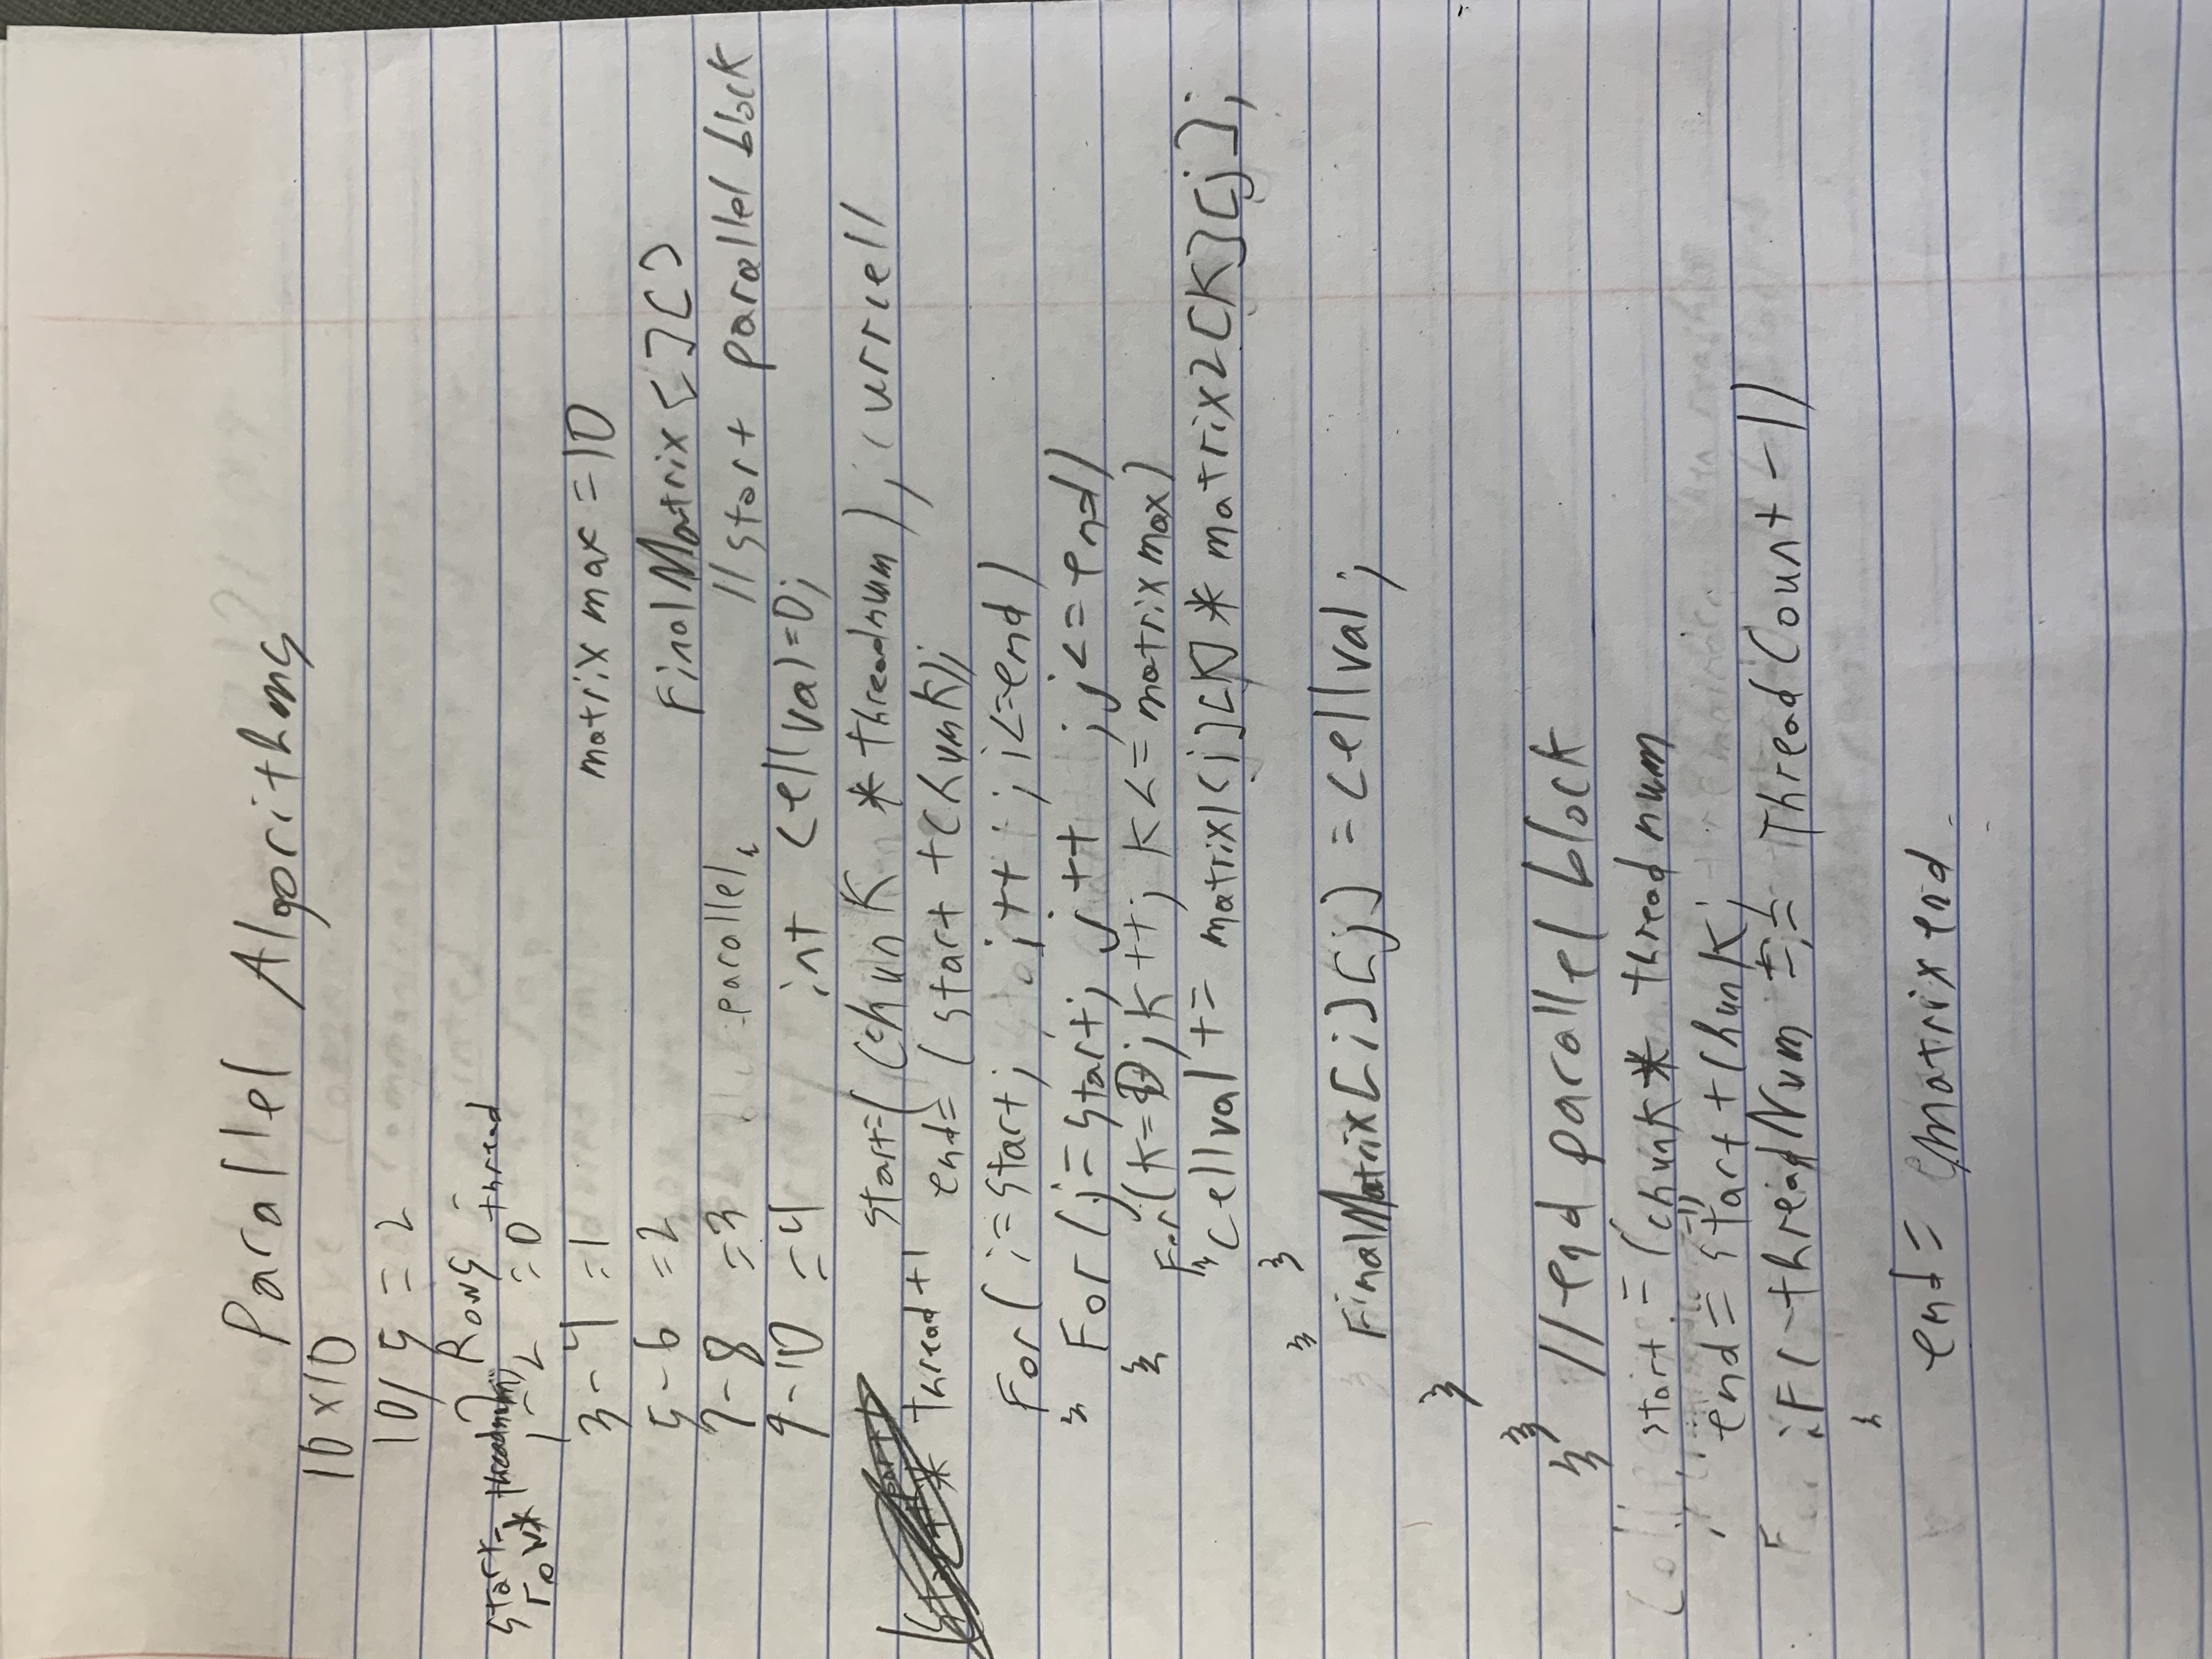 Parallel Algorithms
10 x 10
10/5 = 2
Rows - thread
start- threadnum;
row*
1-2 = 0
3-4 = 1
matrix max = 10
5-6 = 2
Final Matrix [ ][ ]
7-8 = 3
parallel {
// start parallel block
9-10 = 4
int cell val = 0;
start = ( (chunk * threadnum) ; currcell
* thread + 1
end = (start + chunk);
For( i = start; i++ ; i <= end)
{ For (j = start; j++ ; j <= end)
{ For(k=0; k++; k <= matrix max)
{ cell val += matrix1[j][k] * matrix2[k][j];
}
}
Final Matrix [i][j] = cell val;
}
}
} // end parallel block
start = (chunk * thread num
-1)
end = start + chunk;
if ( threadNum == Thread Count -1)
{
end = matrix end